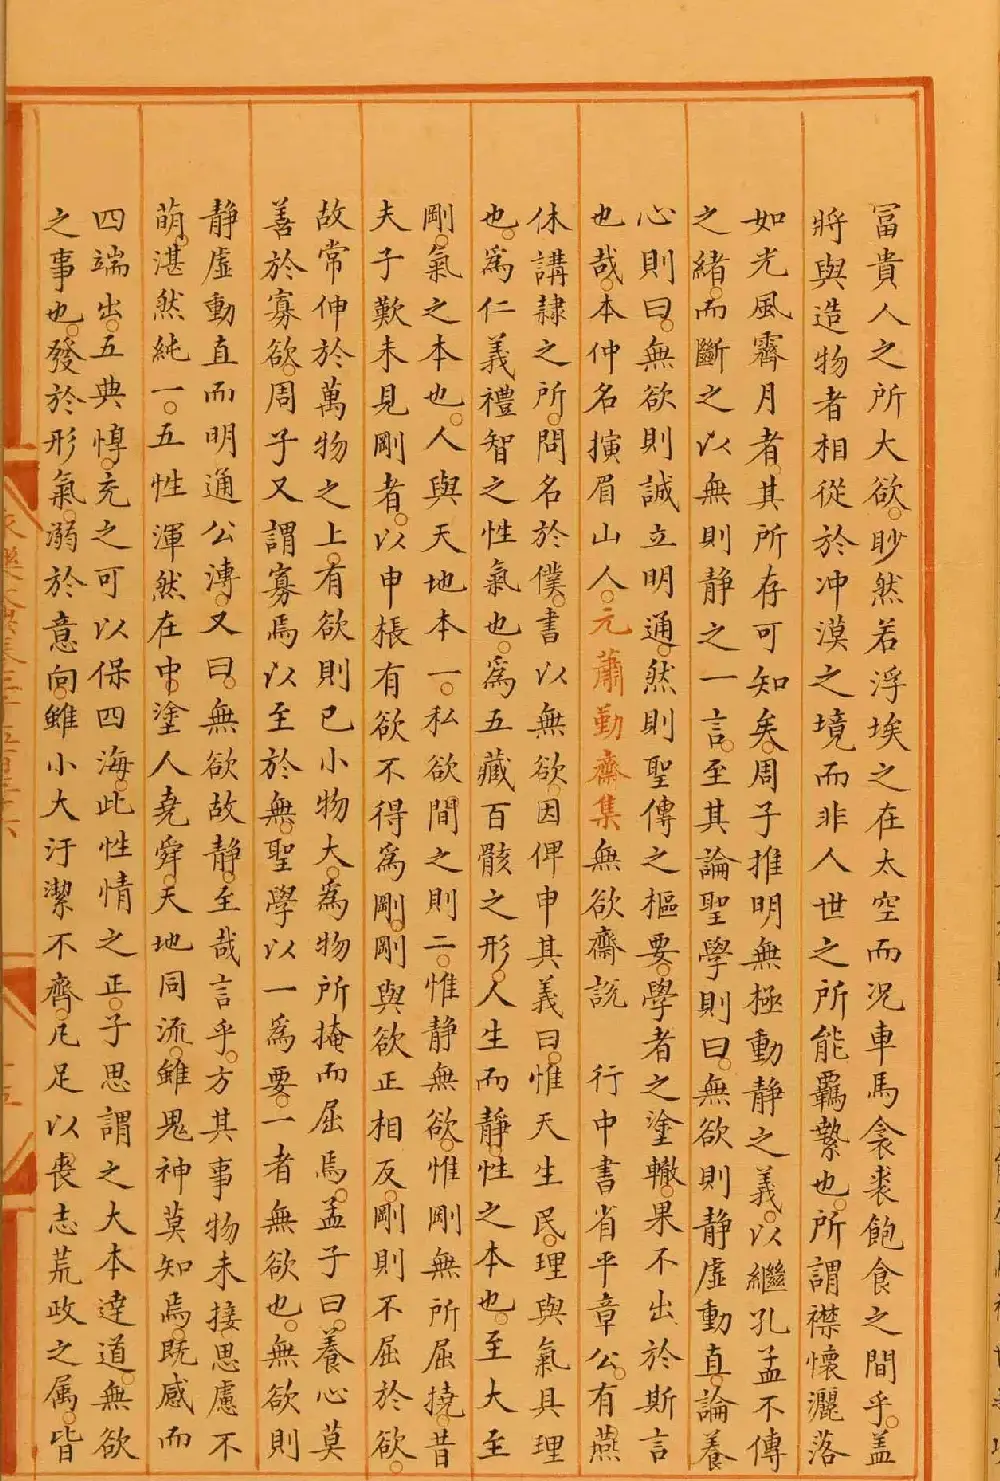 富貴人之所大欲。眇然若浮埃之在太空。而况車馬衾裘飽食之間乎。盖
將與造物者相從於冲漠之境。而非人世之所能羈縶也。所謂襟懷灑落
如光風霽月者。其所存可知矣。周子推明無極動静之義。以繼孔孟不傳
之緒。而斷之以無則静之一言。至其論聖學則曰。無欲則静虚動直。論養
心則曰。無欲則誠立明通。然則聖傳之樞要。學者之塗轍。果不出於斯言
也哉。本仲名㨕眉山人。元蕭勤齋集無欲齋説 行中書省平章公。有燕
休講隷之所。問名於僕。書以無欲。因俾申其義曰。惟天生民。理與氣具。理
也。為仁義禮智之性。氣也。為五藏百骸之形。人生而静。性之本也。至大至
剛。氣之本也。人與天地本一。私欲間之則二。惟静無欲。惟剛無所屈撓。昔
夫子歎未見剛者。以申棖有欲不得為剛。剛與欲正相反。剛則不屈於欲。
故常伸於萬物之上。有欲則已小物大。為物所掩而屈焉。孟子曰。養心莫
善於寡欲。周子又謂寡焉以至於無。聖學以一為要。一者無欲也。無欲則
静虚動直而明通公溥。又曰。無欲故静。至哉言乎。方其事物未接。思慮不
萌。湛然純一。五性渾然在中。塗人堯舜。天地同流。雖鬼神莫知焉。既感而
四端出。五典惇。充之可以保四海。此性情之正。子思謂之大本達道。無欲
之事也。發於形氣。溺於意向。雖小大汙潔不齊。凡足以喪志荒政之属。皆